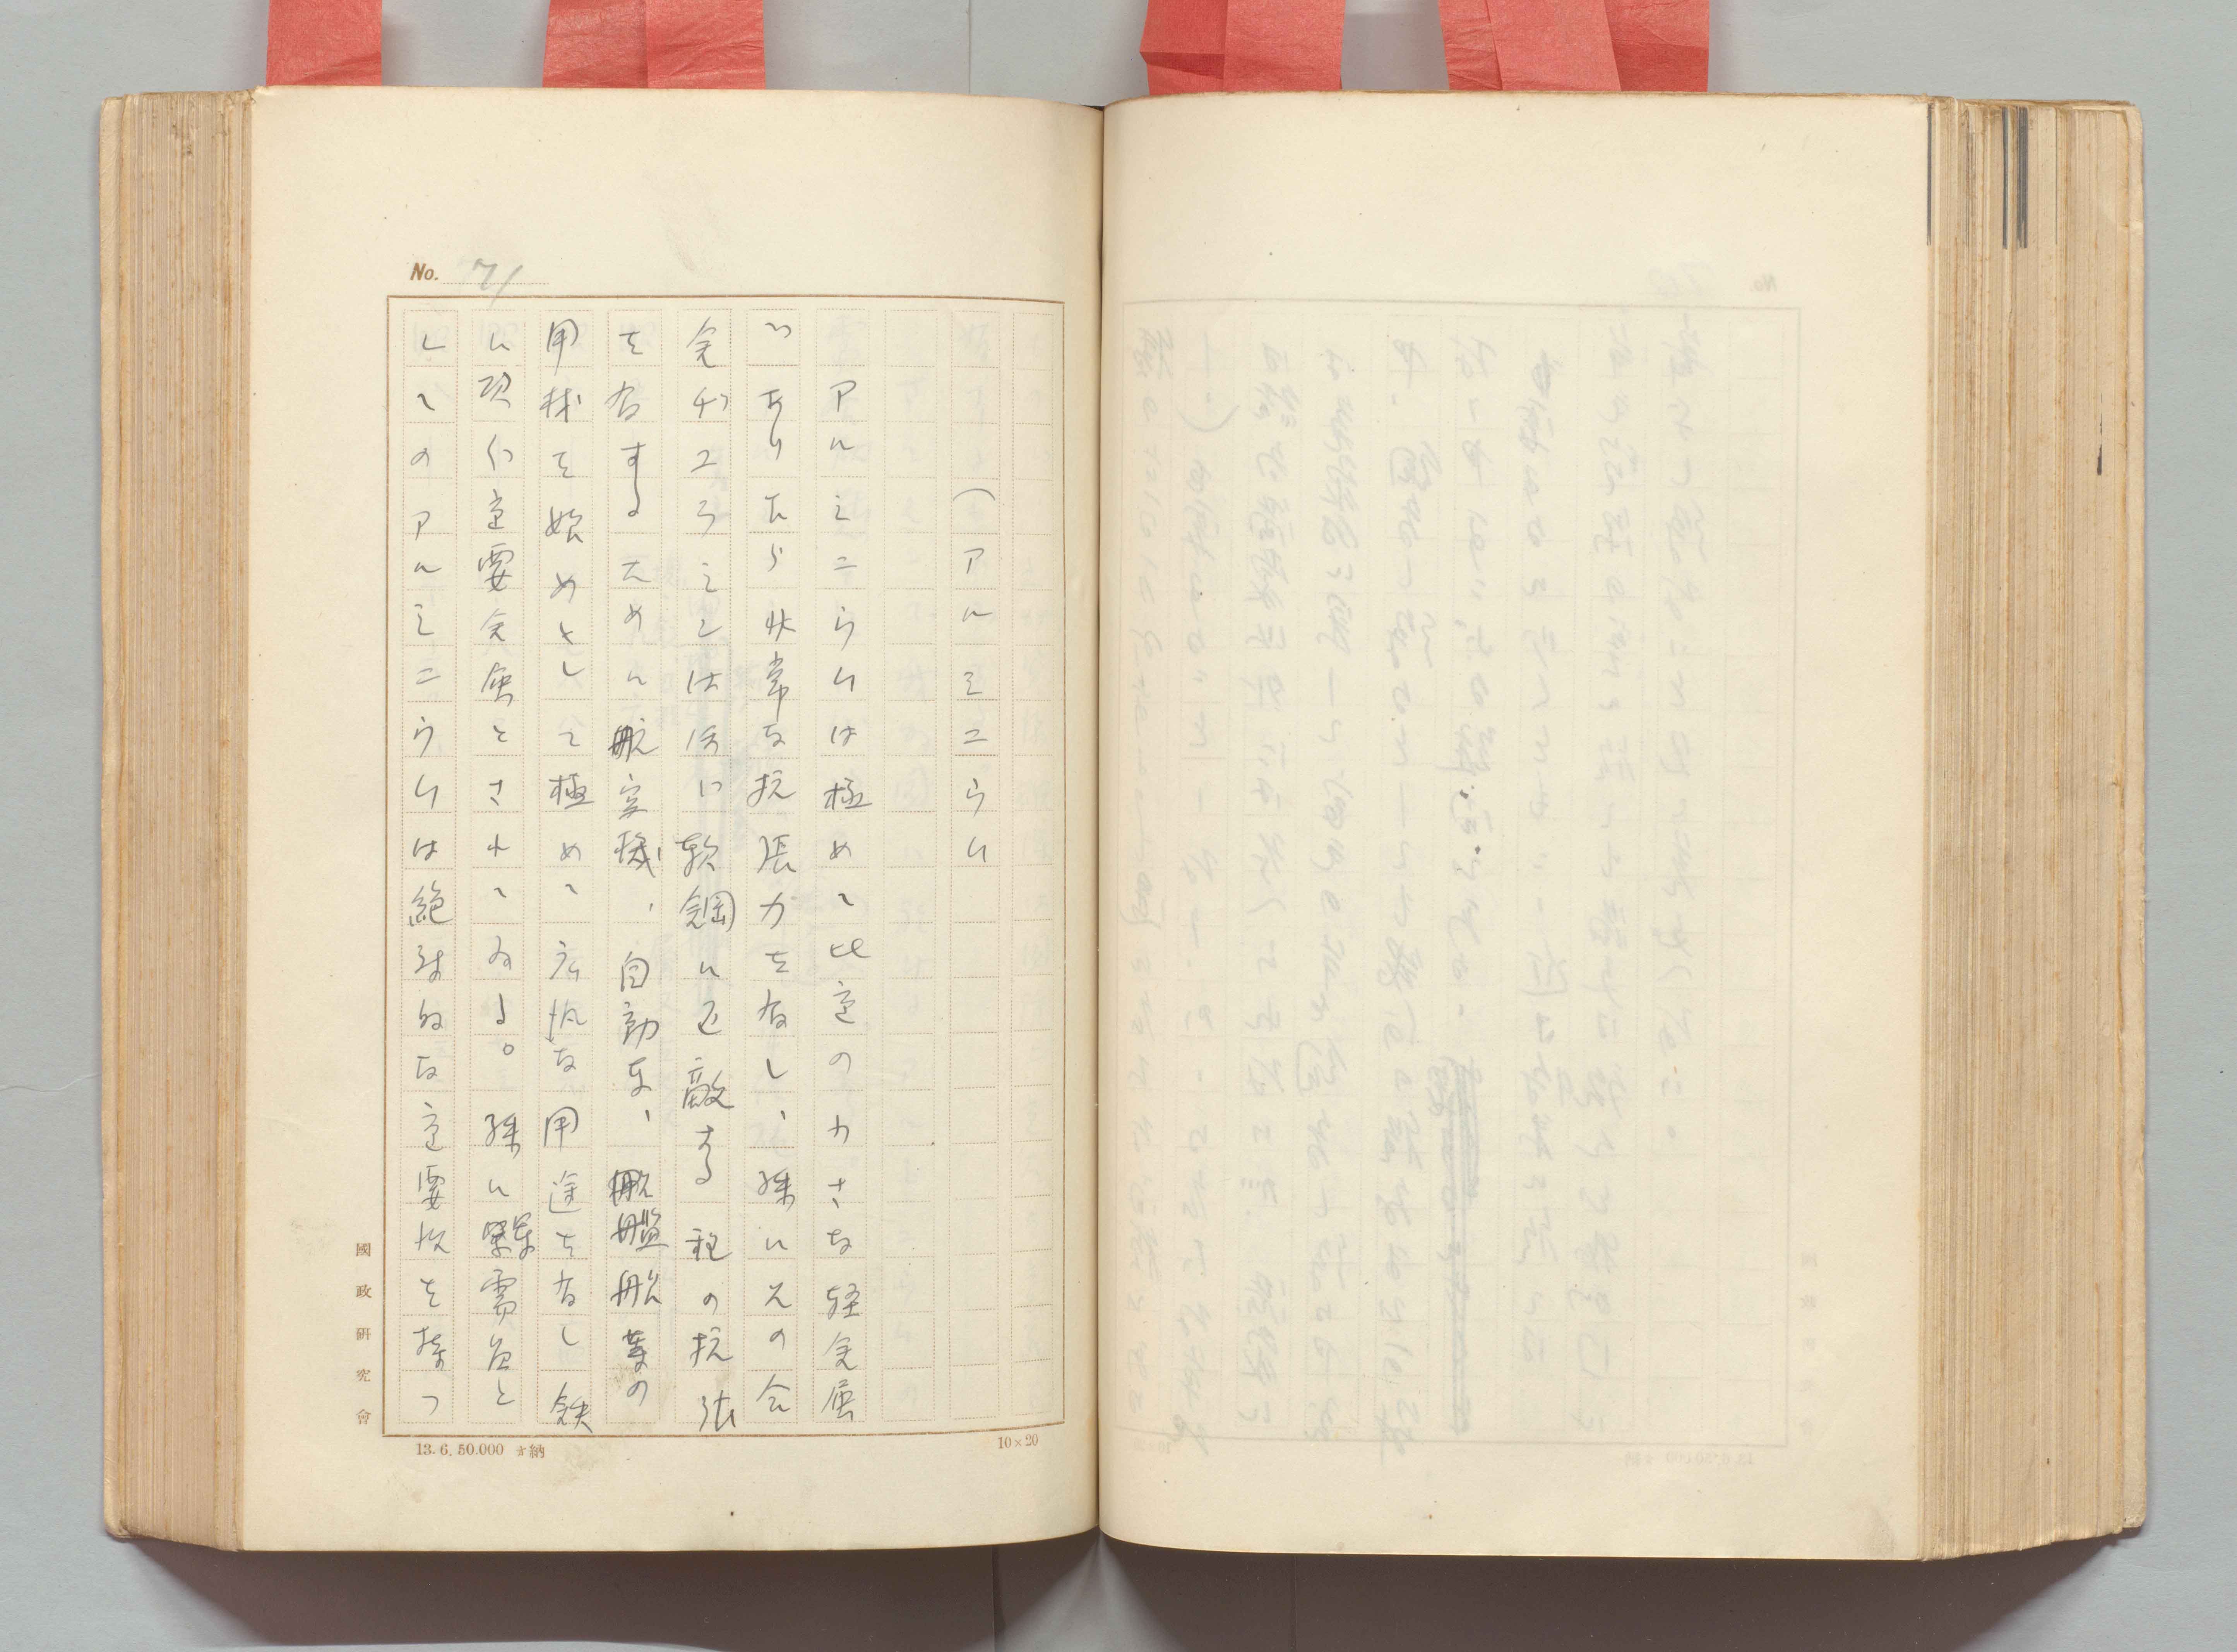 No. 71
(アルミニウム
アルミニウムは極めて比重の小さな軽金属
でありながら非常な抗張力を有し、殊にその合
金ヂユラミンは優に軟鋼に匹敵する程の抗張
を有するために航空機、自動車、艦船等の
用材を始めとして極めて広汎な用途を有し鉄
に次ぐ重要金属とされてゐる。殊に軍需品と
してのアルミニウムは絶対的な重要性を持つ
國政研究會
13. 6. 50.000 納
10×20